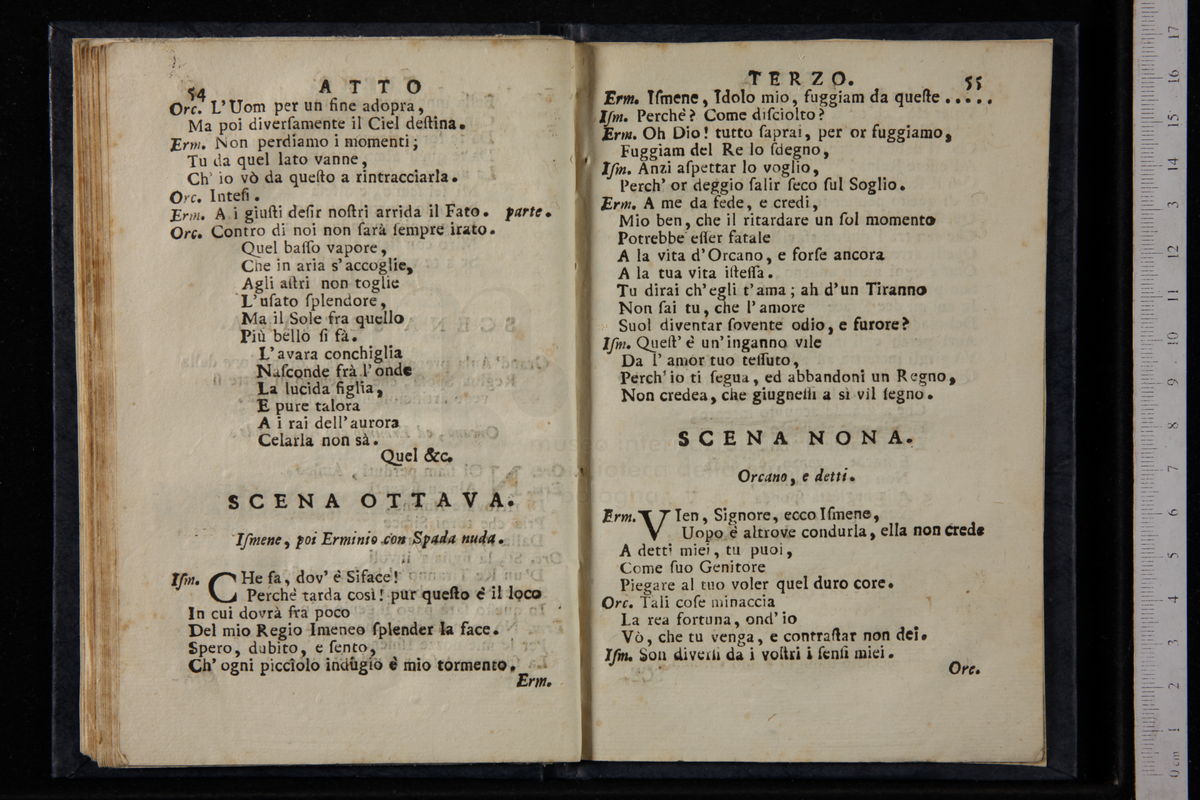 54 ATTO
Orc. L'Uom per un fine adopra,
Ma poi diverſamente il Ciel deſtina.
Erm. Non perdiamo i momenti;
Tu da quel lato vanne,
Ch' io vò da queſto a rintracciarla.
Orc. Inteſi.
Erm. A i giuſti deſir noſtri arrida il Fato. parte.
Orc. Contro di noi non ſarà ſempre irato.
Quel baſſo vapore,
Che in aria s'accoglie,
Agli aſtri non toglie
L'uſato ſplendore,
Ma il Sole fra quello
Più bello ſi fà.
L'avara conchiglia
Naſconde frà l'onde
La lucida figlia,
E pure talora
A i rai dell'aurora
Celarla non sà.
Quel &c.
SCENA OTTAVA.
Iſmene, poi Erminio con Spada nuda.
Iſm. CHe fa, dov' è Siface!
Perchè tarda così! pur queſto è il loco
In cui dovrà fra poco
Del mio Regio Imeneo ſplender la face.
Spero, dubito, e ſento,
Ch' ogni picciolo indugio è mio tormento.
Erm.
TERZO. 55
Erm. Iſmene, Idolo mio, fuggiam da queſte .....
Iſm. Perchè? Come diſciolto?
Erm. Oh Dio! tutto ſaprai, per or fuggiamo,
Fuggiam del Re lo ſdegno,
Iſm. Anzi aſpettar lo voglio,
Perch' or deggio ſalir ſeco ſul Soglio.
Erm. A me da fede, e credi,
Mio ben, che il ritardare un ſol momento
Potrebbe eſſer fatale
A la vita d'Orcano, e forſe ancora
A la tua vita iſteſſa.
Tu dirai ch'egli t'ama; ah d'un Tiranno
Non ſai tu, che l'amore
Suol diventar ſovente odio, e furore?
Iſm. Queſt' è un'inganno vile
Da l' amor tuo teſſuto,
Perch'io ti ſegua, ed abbandoni un Regno,
Non credea, che giugneſſi a sì vil ſegno.
SCENA NONA.
Orcano, e detti.
Erm. VIen, Signore, ecco Iſmene,
Uopo è altrove condurla, ella non crede
A detti miei, tu puoi,
Come ſuo Genitore
Piegare al tuo voler quel duro core.
Orc. Tali coſe minaccia
La rea fortuna, ond' io
Vò, che tu venga, e contraſtar non dei.
Iſm. Son diverſi da i voſtri i ſenſi miei.
Orc.
0 cm 1 2 3 4 5 6 7 8 9 10 11 12 13 14 15 16 17